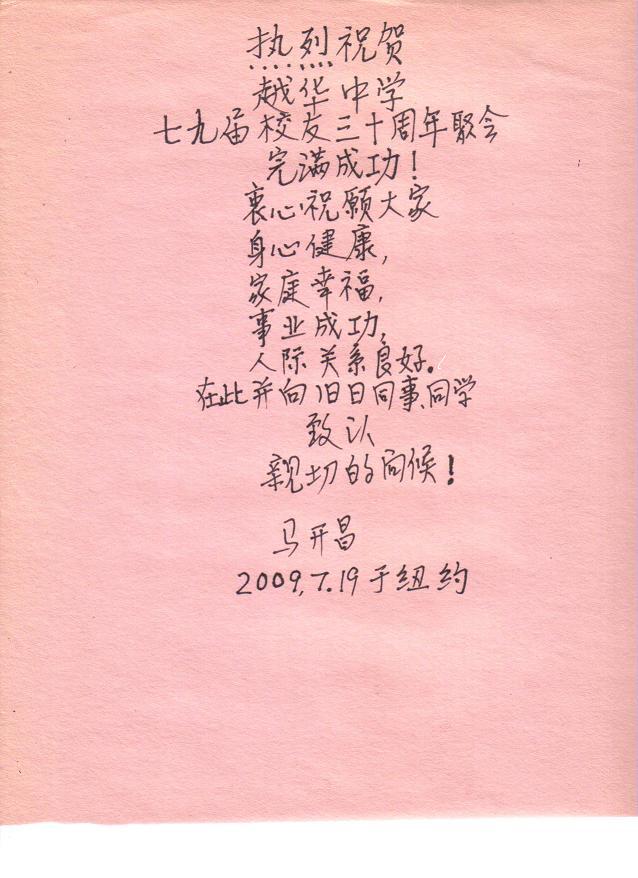 热烈祝贺
越华中学
七九届校友三十周年聚会
完满成功!
衷心祝愿大家
身心健康,
家庭幸福,
事业成功,
人际关系良好。
在此并向旧日同事、同学
致以
亲切的问候!
马开昌
2009.7.19于纽约